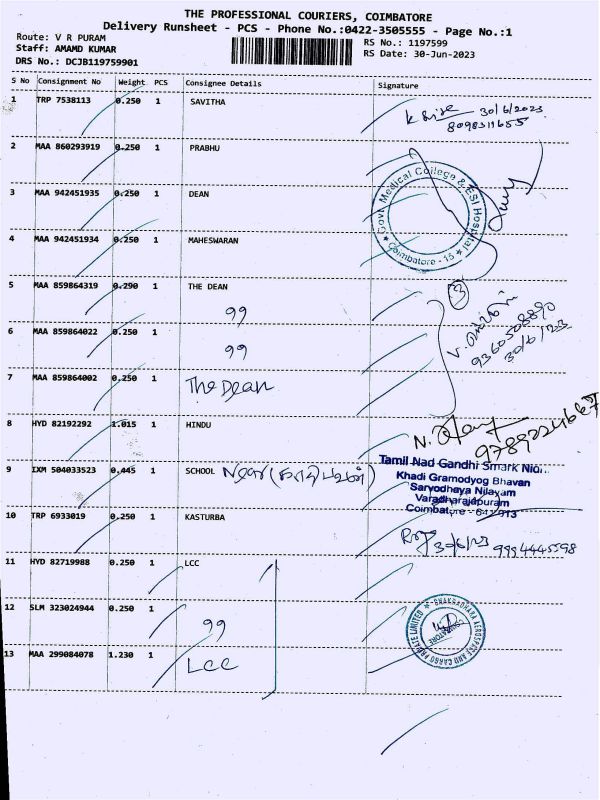 THE PROFESSIONAL COURIERS, COIMBATORE
Delivery Runsheet - PCS - Phone No.:0422-3505555 - Page No.:1
Route: V R PURAM
RS No.: 1197599
Staff: AMAMD KUMAR
RS Date: 30-Jun-2023
DRS No.: DCJB119759901
S No Consignment No Weight PCS Consignee Details Signature
1 TRP 7538113 0.250 1 SAVITHA
30/6/2023
8098311655
2 MAA 860293919 0.250 1 PRABHU
3 MAA 942451935 0.250 1 DEAN
Govt. Medical College & ESI Hospital
Coimbatore - 15
4 MAA 942451934 0.250 1 MAHESWARAN
5 MAA 859864319 0.290 1 THE DEAN
3
99
9360508890
30/6/23
6 MAA 859864022 0.250 1
99
7 MAA 859864002 0.250 1 The Dean
8 HYD 82192292 1.015 1 HINDU
9789224667
9 IXM 504033523 0.445 1 SCHOOL Near
Tamil Nad Gandhi Smark Nidhi
Khadi Gramodyog Bhavan
Sarvodhaya Nilayam
Varadharajapuram
Coimbatore - 641 013
10 TRP 6933019 0.250 1 KASTURBA
30/6/23 9994445598
11 HYD 82719988 0.250 1 LCC
12 SLM 323024944 0.250 1
99
SHAKSADHARA AEROSPACE AND CARGO PRIVATE LIMITED
COIMBATORE
13 MAA 299084078 1.230 1 LCC